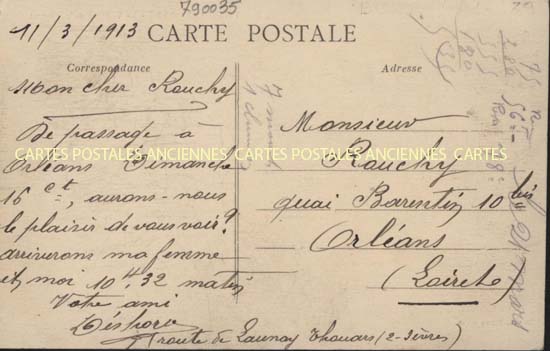 790035
11/3/1913 CARTE POSTALE
Correspondance
Mon cher Rouchy
De passage à
Orléans Dimanche
16 ct, aurons-nous
le plaisir de vous voir?
arriverons ma femme
et moi 10h,32 matin
Votre ami
route de Launay Thouars (2-Sèvres)
Adresse
Monsieur
Rouchy
quai Barentin 10 bis
Orléans
(Loiret)
CARTES POSTALES ANCIENNES CARTES POSTALES ANCIENNES